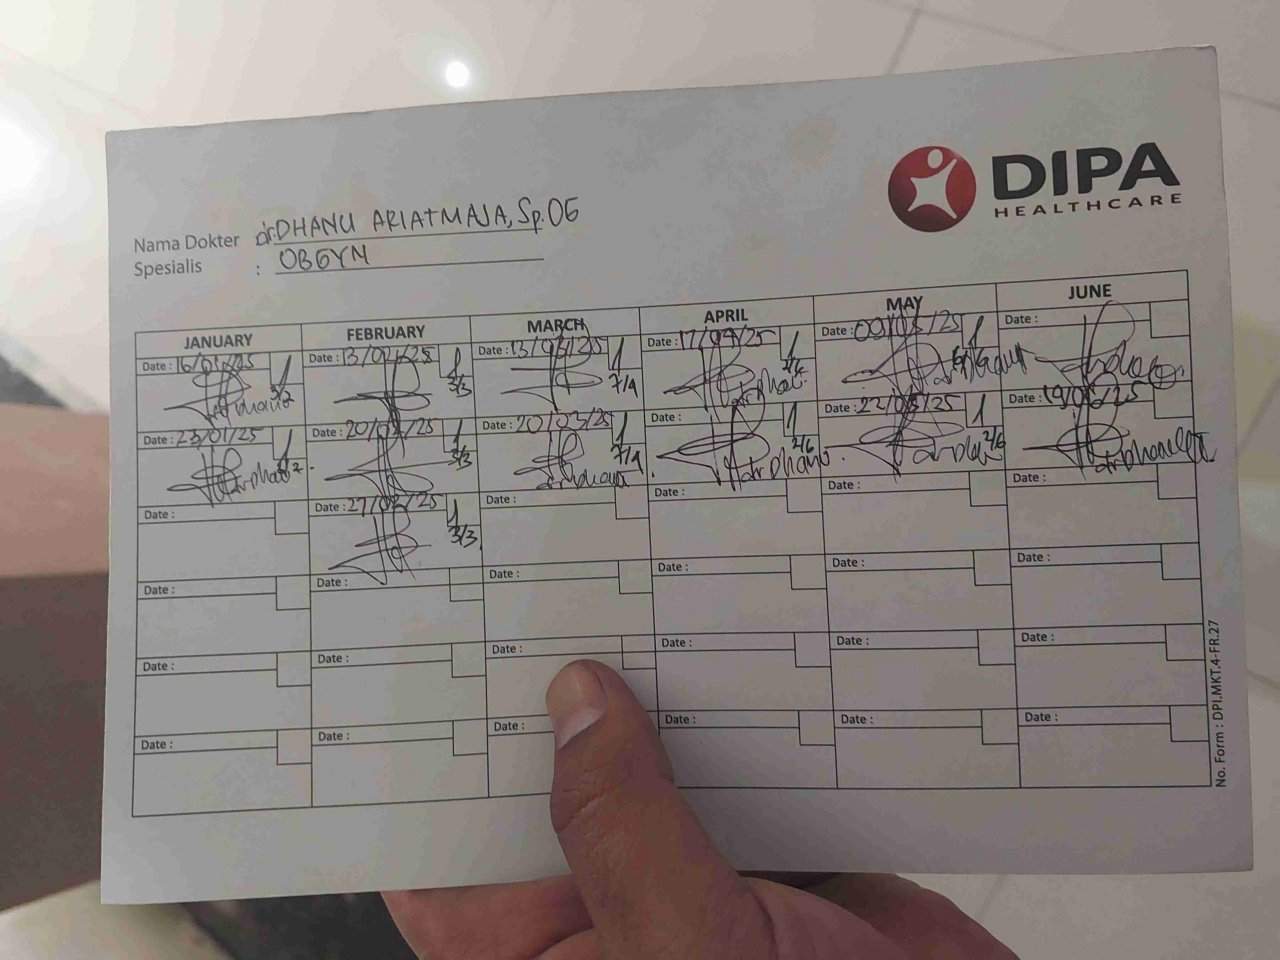 DIPA
HEALTHCARE
Nama Dokter dr.DHANU ARIATMAJA, Sp.OG
Spesialis : OBGYN
JANUARY FEBRUARY MARCH APRIL MAY JUNE
Date : 16/01/25 Date : 13/02/25 Date : 13/03/25 Date : 17/04/25 Date : 09/05/25 Date :
3/2 3/3 7/4
Date : 23/01/25 Date : 20/02/25 Date : 20/03/25 Date : 22/05/25 19/06/25
3/3 7/4 2/6 2/6
Date : Date : 27/02/25 Date : Date : Date : Date :
3/3
Date : Date : Date : Date : Date : Date :
Date : Date : Date : Date : Date : Date :
Date : Date : Date : Date : Date : Date :
No. Form : DPI.MKT.4-FR.27